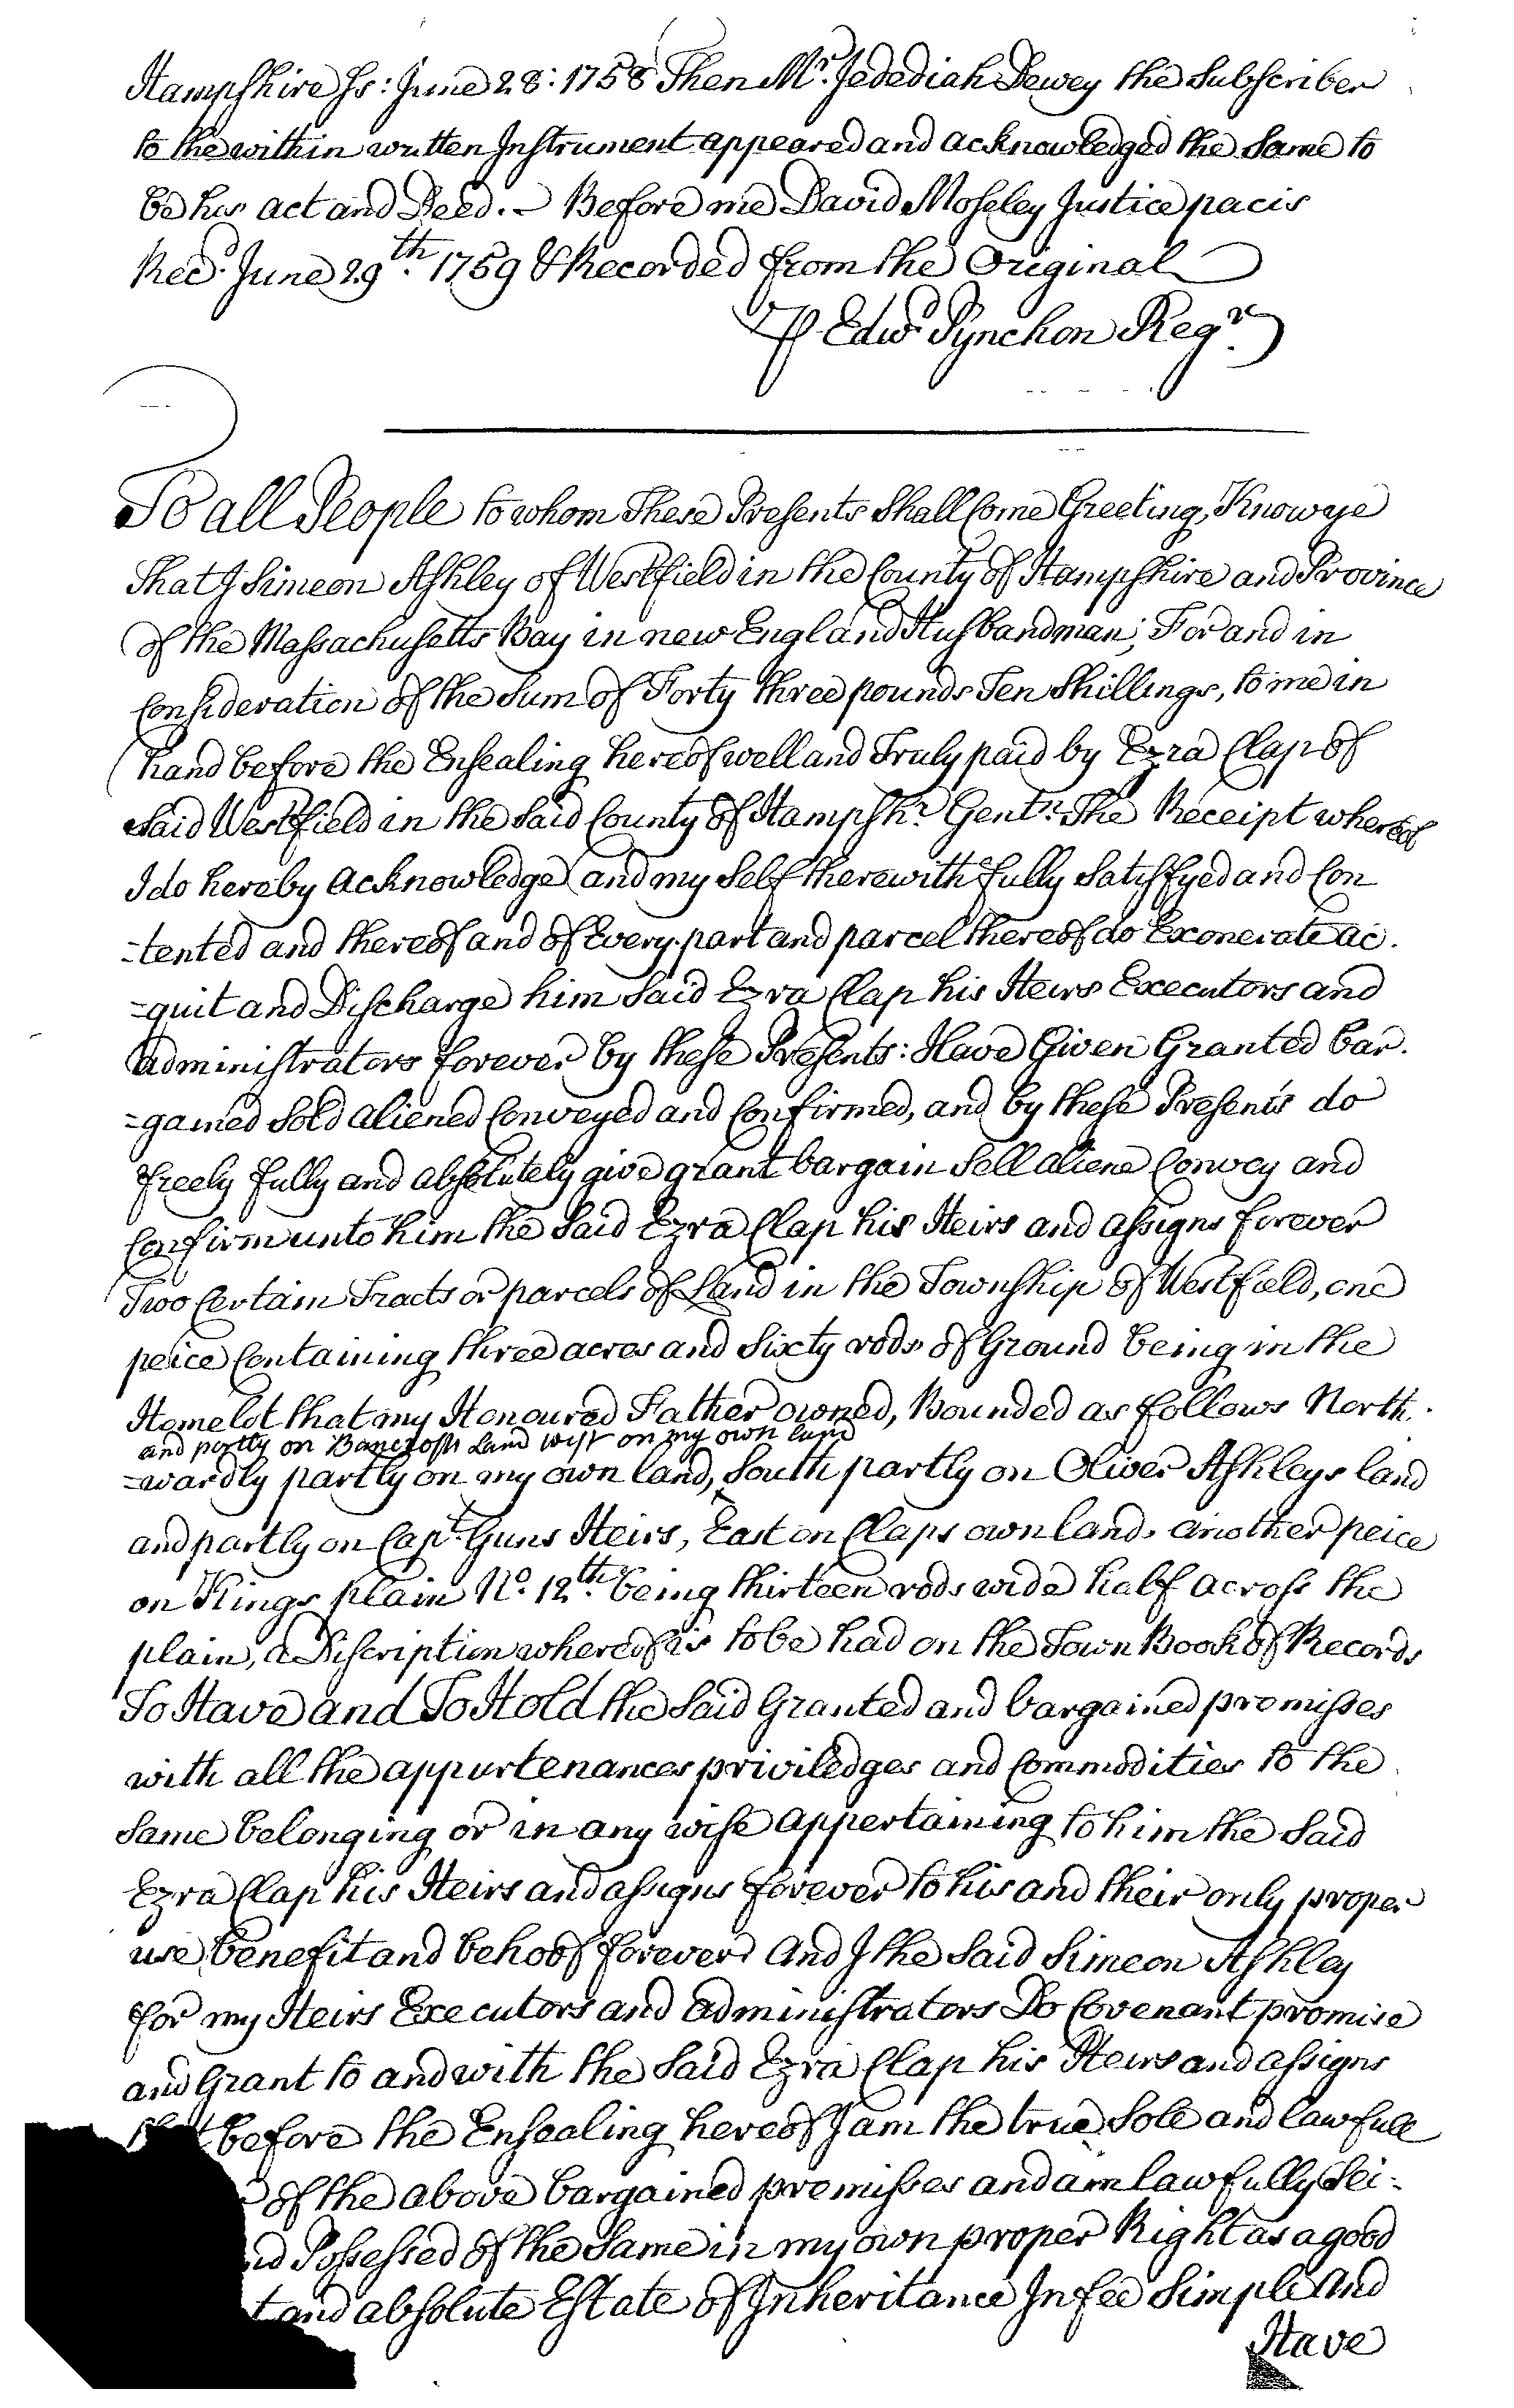 Hampshire Ss: June 28: 1758 Then Mr. Jedediah Dewey the Subscriber
to the within written Instrument appeared and acknowledged the Same to
be his act and Deed. - Before me David Moseley Justice pacis
Recd. June 29th. 1759 & Recorded from the Original
P Edwd Pynchon Regr.
To all People to whom These Presents Shall Come Greeting, Know ye
That I Simeon Ashley of Westfield in the County of Hampshire and Province
of the Massachusetts Bay in new England Husbandman; For and in
Consideration of the Sum of Forty three pounds Ten Shillings, to me in
hand before the Ensealing hereof well and Truly paid by Ezra Clap of
Said Westfield in the Said County of Hampshr. Gentn. The Receipt whereof
I do hereby acknowledge and my Self therewith fully Satisfyed and Con
-tented and thereof and of Every part and parcel thereof do Exonerate ac.
=quit and Discharge him Said Ezra Clap his Heirs Executors and
administrators forever by these Presents: Have Given Granted bar.
=gained Sold aliened Conveyed and Confirmed, and by these Presents do
freely fully and absolutely give grant bargain Sell aliene Convey and
Confirm unto him the Said Ezra Clap his Heirs and assigns forever
Two Certain Tracts or parcels of Land in the Township of Westfield, one
peice Containing three acres and Sixty rods of Ground being in the
Homelot that my Honoured Father owned, Bounded as follows North.
and partly on Bancrofts Land west on my own land
=wardly partly on my own land, South partly on Oliver Ashleys land
and partly on Capt. Guns Heirs, East on Claps own land. another peice
on Kings plain No. 12th. being thirteen rods wide half across the
plain, a Discription whereof is to be had on the Town Book of Records
To Have and To Hold the Said Granted and bargained promisses
with all the appurtenances priviledges and Commodities to the
Same belonging or in any wise appertaining to him the Said
Ezra Clap his Heirs and assigns forever to his and their only proper
use benefit and behoof forever And I the Said Simeon Ashley
for my Heirs Executors and administrators Do Covenant promise
and Grant to and with the Said Ezra Clap his Heirs and assigns
that before the Ensealing hereof I am the true Sole and lawfull
of the above bargained promisses and am lawfully Sei-
Possessed of the Same in my own proper Right as a good
and absolute Estate of Inheritance In fee Simple And
Have